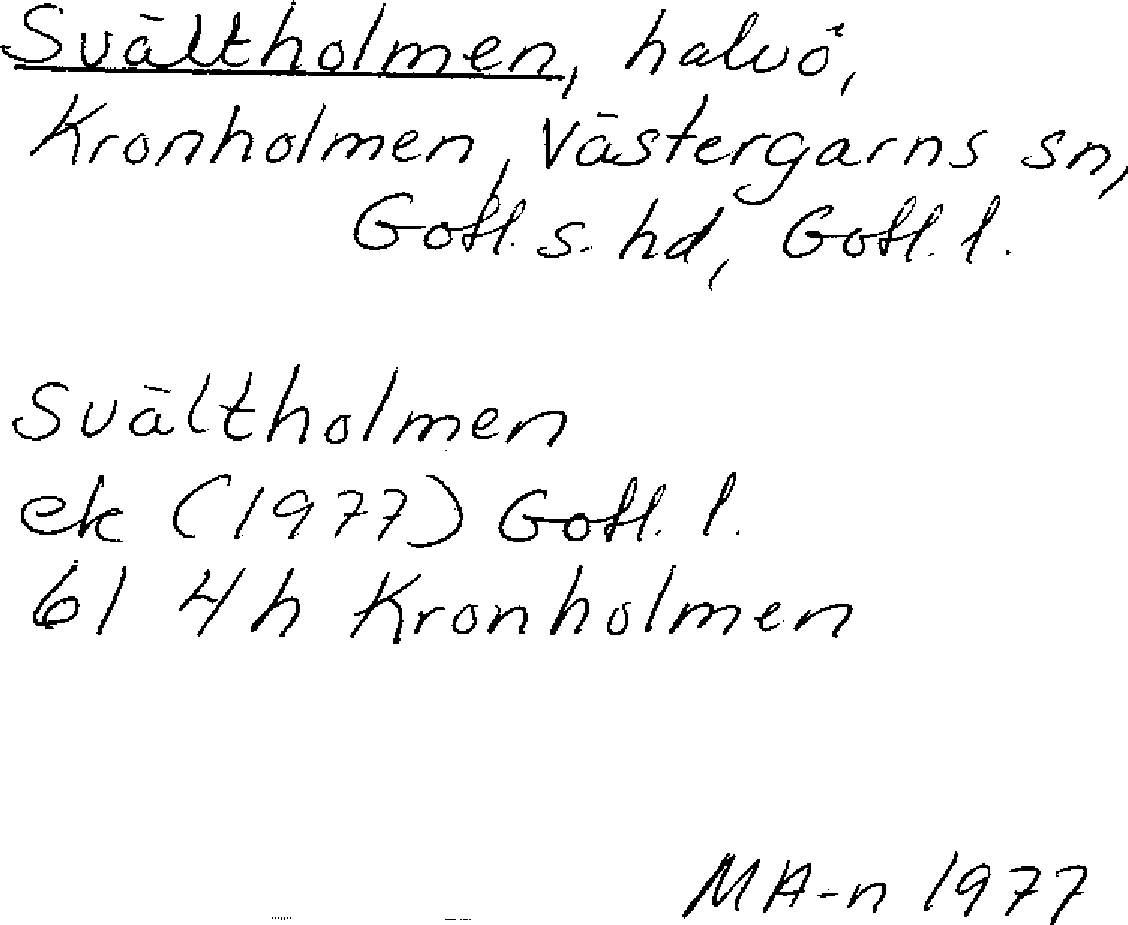 Svältholmen, halvö,
Kronholmen, Västergarns sn,
Gotl. s. hd, Gotl. l.
Svältholmen
ek (1977) Gotl. l.
6I 4h Kronholmen
MA-n 1977